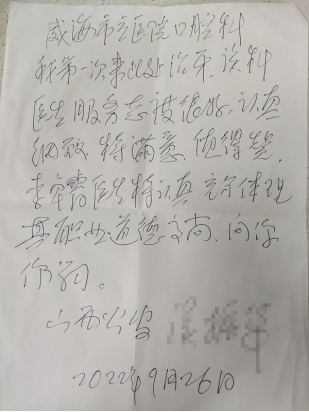 威海市立医院口腔科
我第一次来此处治牙，该科
医生服务态度很好，认真
细致，特满意，值得赞，
李 医生特认真，充分体现
其职业道德高尚，向你
们
山西
2022年9月26日